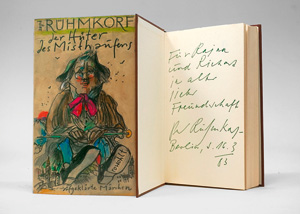 RÜHMKORF
der Hüter
des Misthaufens
aufgeklärte Märchen
Für Rajan
und Richard
in alter
Freundschaft
Berlin, d. 16.3
83